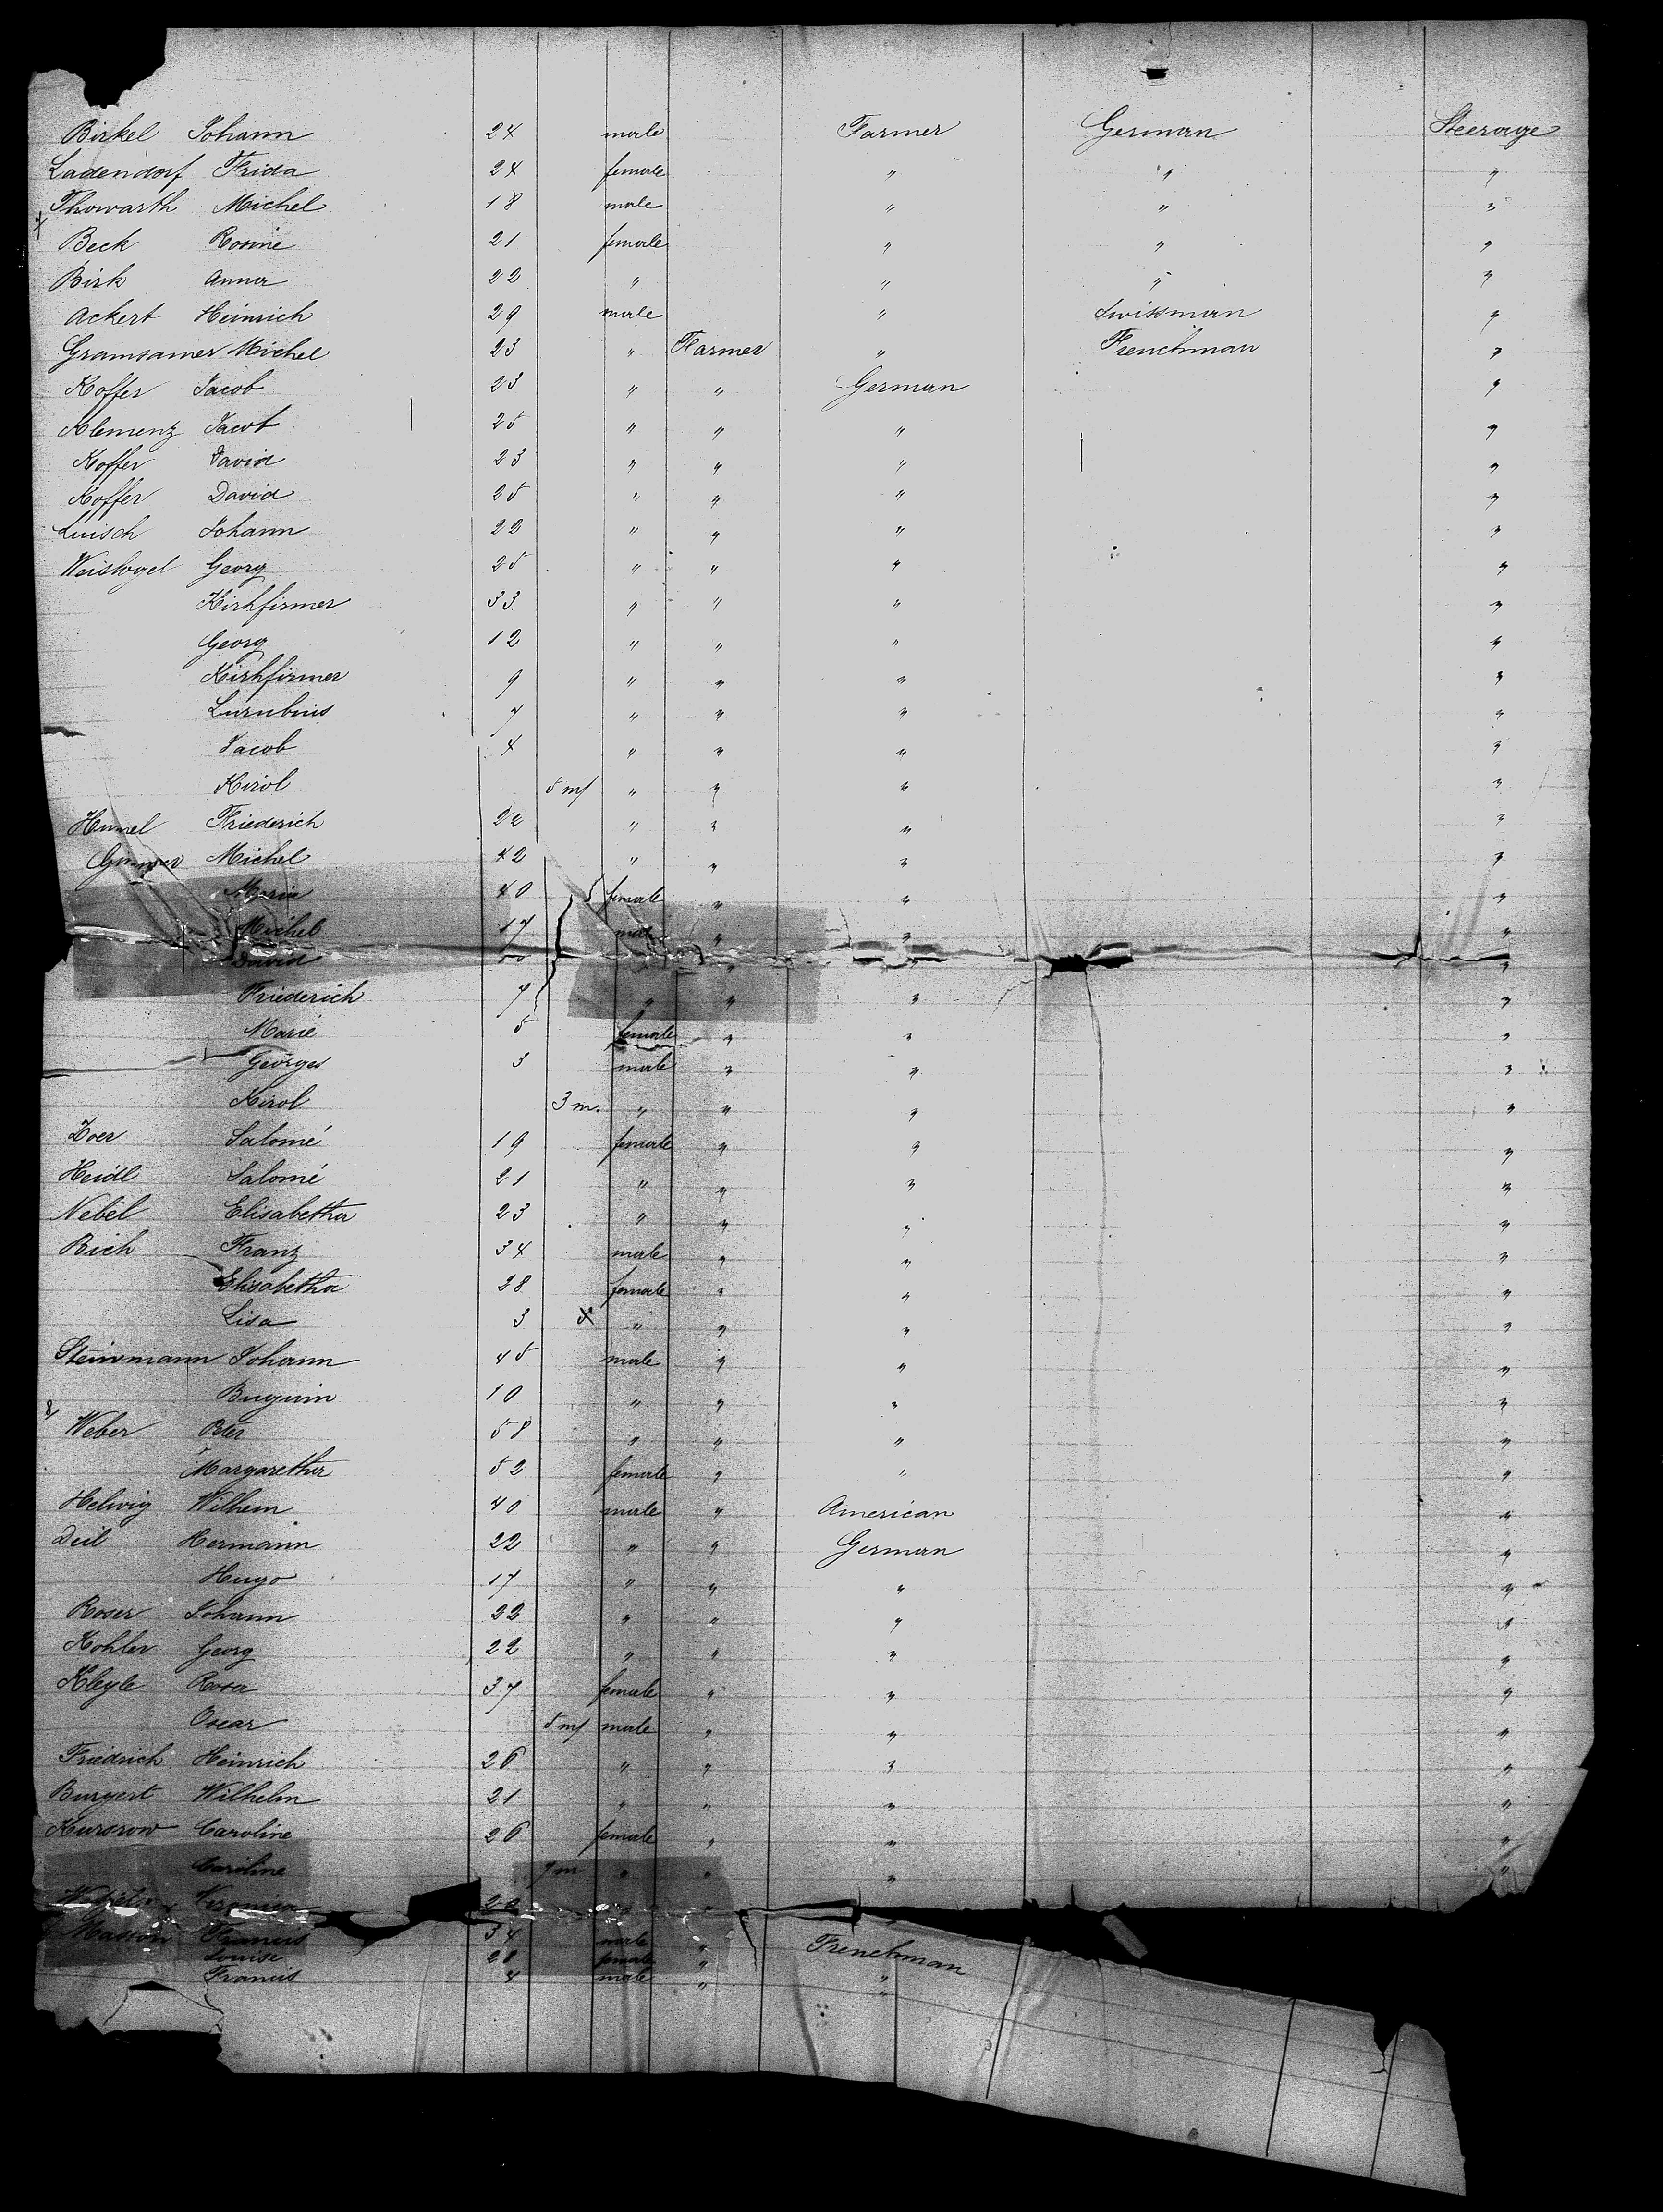 Birkel Johann 24 male Farmer German Steerage
Ladendorf Frida 24 female " " "
Thowarth Michel 18 male " " "
Beck Rosine 21 female " " "
Birk Anna 22 " " " "
Ackert Heinrich 29 male " Swissman "
Gramsamer Michel 23 " Farmer " Frenchman "
Koffer Jacob 23 " " German "
Klemenz Jacob 25 " " " "
Koffer David 23 " " " "
Koffer David 25 " " " "
Luisch Johann 22 " " " "
Weisvogel Georg 25 " " " "
Kirhfirmer 33 " " " "
Georg 12 " " " "
Kirhfirmer 9 " " " "
7 " " " "
Jacob 4 " " " "
Kirol 5 m/ " " " "
Humel Friederich 22 " " " "
Michel 42 " " " "
Maria 40 female " " "
Michel 17 male " " "
David " " " "
Friederich 7 " " " "
Marie 5 female " " "
Georges 3 male " " "
Kirol 3 m. " " " "
Salomé 19 female " " "
Heidl Salomé 21 " " " "
Nebel Elisabetha 23 " " " "
Bich Franz 34 male " " "
Elisabetha 28 female " " "
Lisa 3 " " " "
Steinmann Johann 45 male " " "
10 " " " "
Weber Peter 58 " " " "
Margaretha 52 female " " "
Helwig Wilhem 40 male " American "
Deil Hermann 22 " " German "
Hugo 17 " " " "
Roser Johann 22 " " " "
Kohler Georg 22 " " " "
Kleyle Rosa 37 female " " "
Oscar 5 m/ male " " "
Friedrich Heinrich 26 " " " "
Burgert Wilhelm 21 " " " "
Kursrow Caroline 26 female " " "
Caroline 9 m " " " "
Veronica
Masson Francis 34 male " Frenchman
Louise 28 female " "
Francis 4 male " "